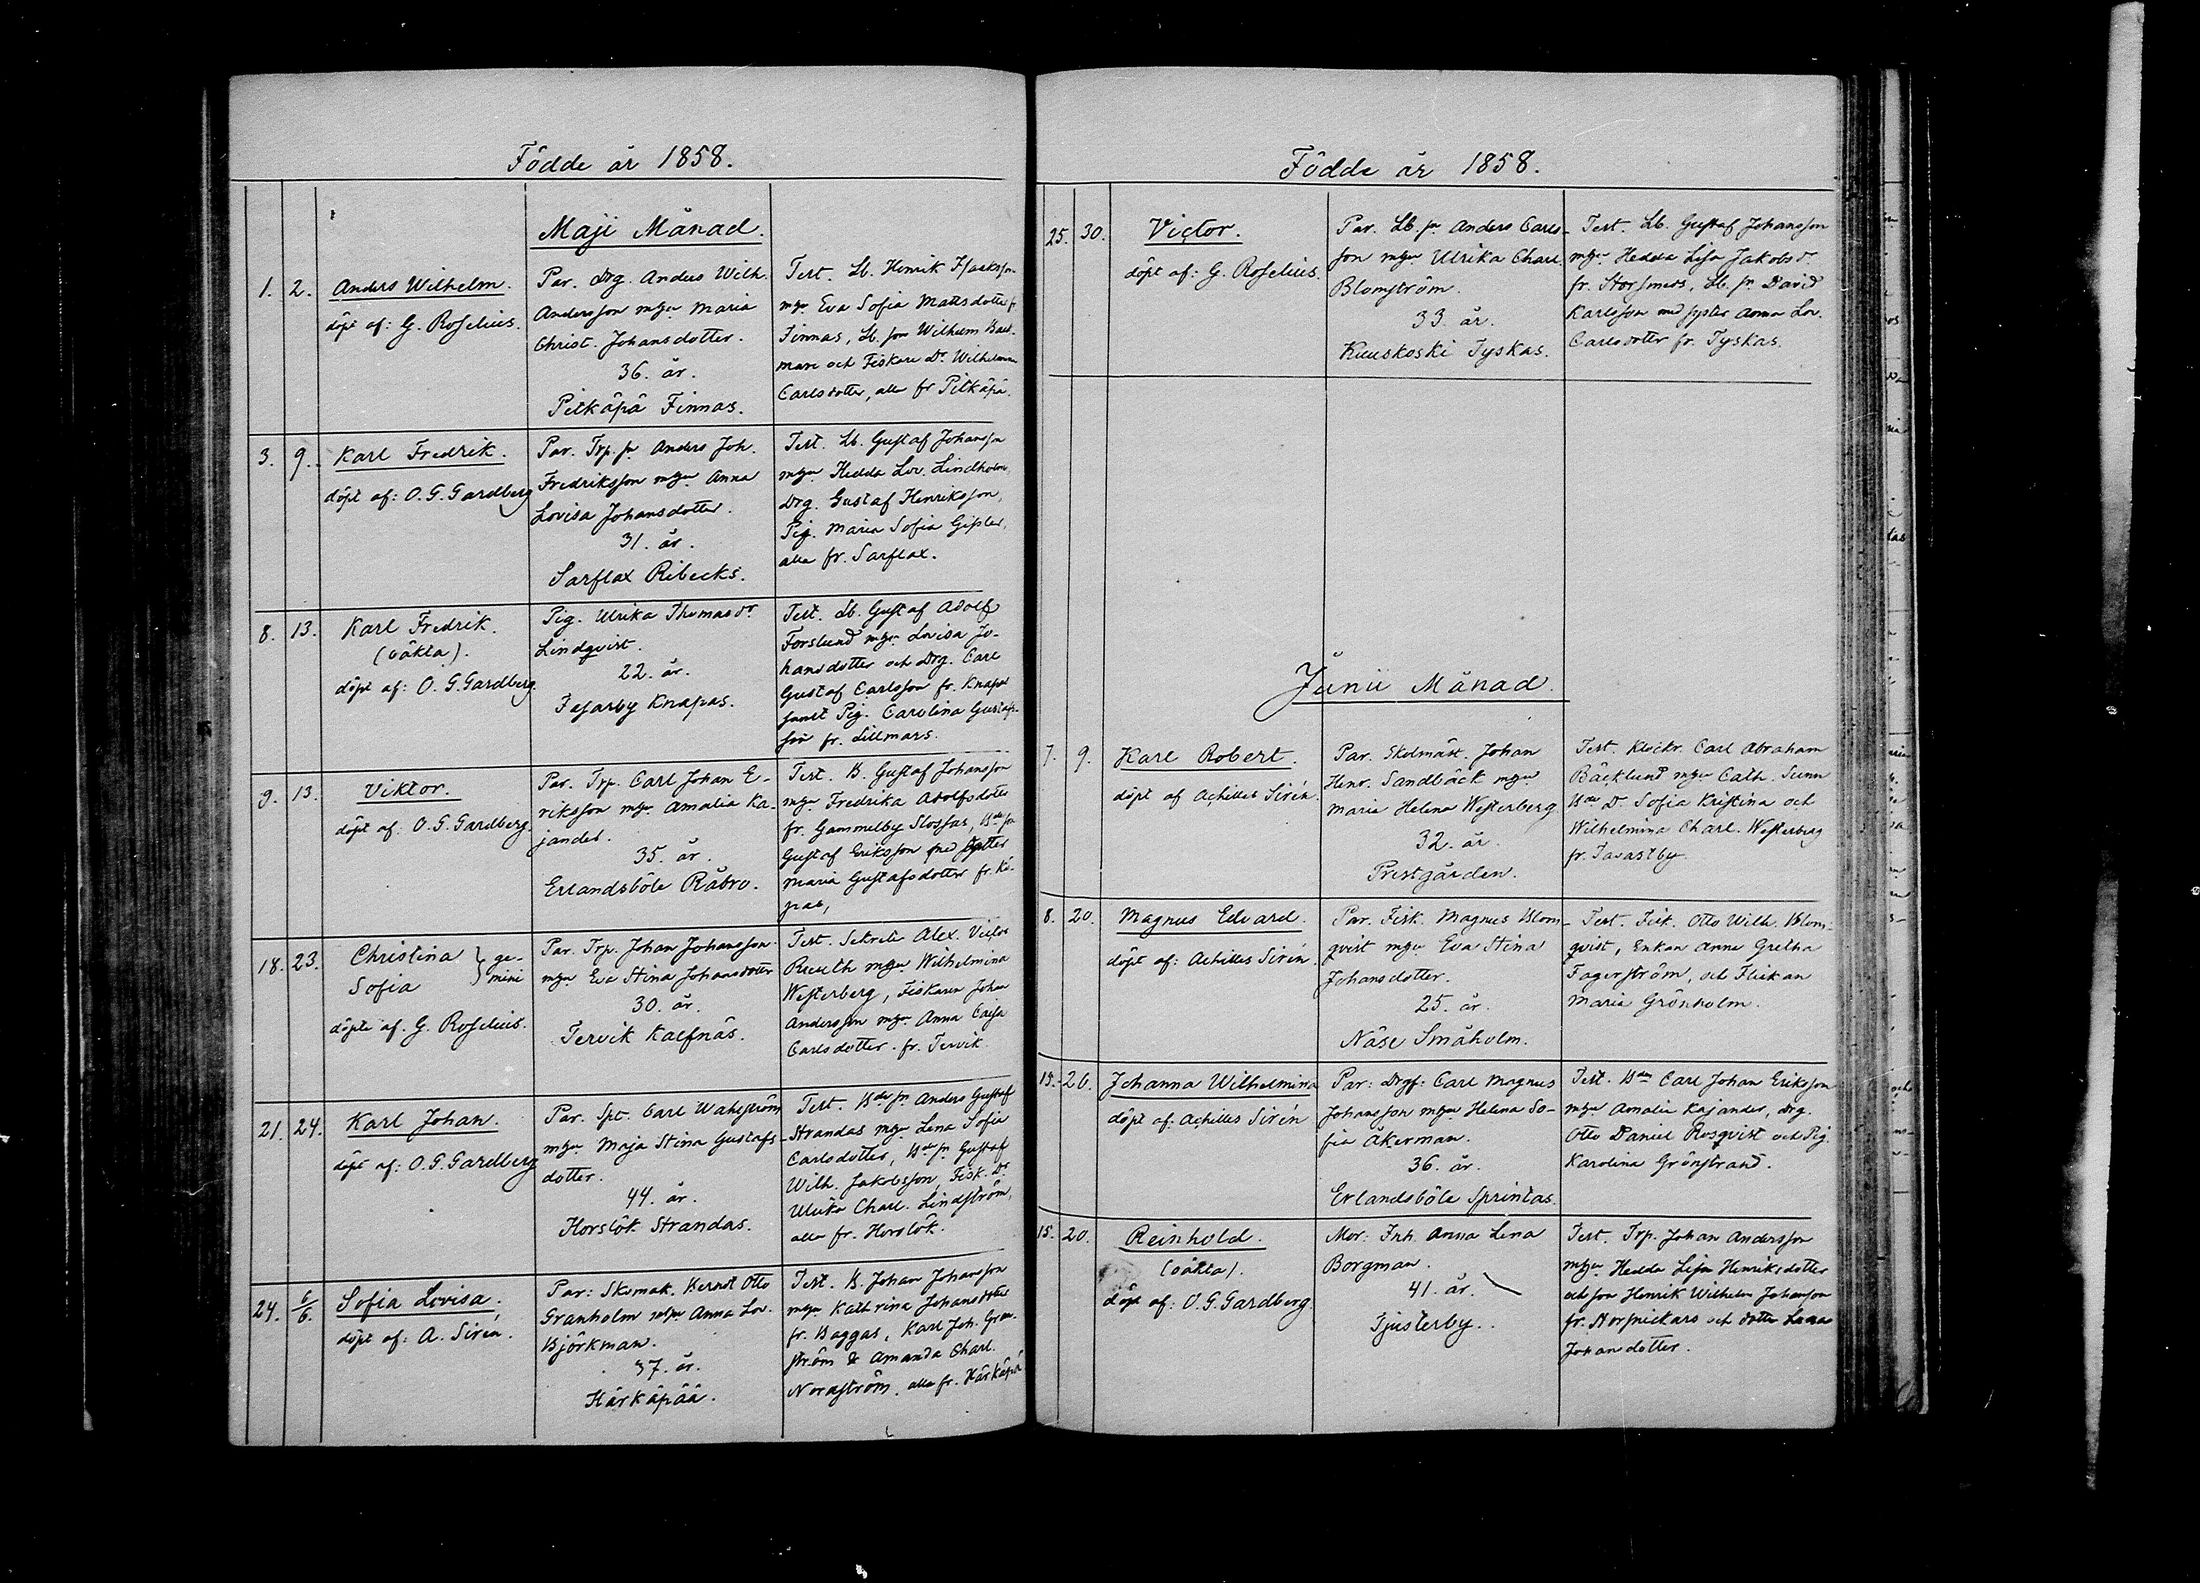 Födde år 1858.
Maji Månad.
1. 2. Anders Wilhelm.
döpt af: G. Roselius.
Par. Drg. Anders Wilh.
Andersson mhu Maria
Christ. Johansdotter.
36. år.
Pitkäpä Finnas.
Test. Lb. Henrik Isaksson
mhu Eva Sofia Mattsdotter fr
Finnas, Lb. son Wilhelm
och Fiskare Dr Wilhelmina
Carlsdotter, alla fr Pitkäpä.
3. 9. Karl Fredrik.
döpt af: O. G. Gardberg
Par. Trp. sn Anders Joh.
Fredriksson mhu Anna
Lovisa Johansdotter.
31. år.
Sarflax Ribecks.
Test. Lb. Gustaf Johansson
mhu Hedda Lov. Lindholm,
Drg. Gustaf Henriksson,
Pig. Maria Sofia
alla fr. Sarflax.
8. 13. Karl Fredrik.
(oäkta).
döpt af: O. G. Gardberg.
Pig. Ulrika Thomasdr
Lindqvist.
22. år.
Isnäs Knapas.
Test. Lb. Gustaf Adolf
Forslund mhu Lovisa Jo-
hansdotter och Drg. Carl
Gustaf Carlsson fr. Knapas
samt Pig. Carolina Gustafs-
fr. Lillmars.
9. 13. Viktor.
döpt af: O. G. Gardberg.
Par. Trp. Carl Johan E-
riksson mhu Amalia Ka-
jander.
35. år.
Erlandsböle Råbro.
Test. B. Gustaf Johansson
mhu Fredrika Adolfsdotter
fr. Gammelby Slossas, Bde sn
Gustaf Eriksson med dotter
Maria Gustafsdotter fr. Ki-
pas,
18. 23. Christina } ge-
Sofia } mini
döpte af. G. Roselius.
Par. Trp. Johan Johansson
mhu Eva Stina Johansdotter
30. år.
Tervik Kalfnäs.
Test. Sekrete Alex. Victor
Reuth mhu Wilhelmina
Westerberg, Fiskaren Johan
Andersson mhu Anna Caisa
Carlsdotter. fr. Tervik
21. 24. Karl Johan.
döpt af: O. G. Gardberg
Par. Spt. Carl Wahlström
mhu Maja Stina Gustafs-
dotter.
44. år.
Horslök Strandas.
Test. Bde sn Anders Gustaf
Strandas mhu Lena Sofia
Carlsdotter, Bde sn Gustaf
Wilh. Jakobsson, Fisk. Dr
Ulrika Charl. Lindström,
alla fr. Horslök.
24. 6/6. Sofia Lovisa.
döpt af: A. Sirén.
Par: Skomak. Berndt Otto
Granholm mhu Anna Lov.
Björkman.
37. år.
Härkäpää.
Test. B. Johan Johansson
mhu Kathrina Johansdotter
fr. Baggas, Karl Joh. Gran-
ström & Amanda Charl.
Nordström. alla fr. Härkäpä
Födde år 1858.
25. 30. Victor.
döpt af: G. Roselius
Par. Lb. sn Anders Carls-
son mhu Ulrika Charl.
Blomström.
33. år.
Kuuskoski Tyskas.
Test. Lb. Gustaf Johansson
mhu Hedda Lisa Jakobsdr
fr. Storsmeds, Lb. sn David
Karlsson med syster Anna Lov.
Carlsdotter fr. Tyskas.
Junii Månad.
7. 9. Karl Robert.
döpt af Achilles Sirén.
Par. Skolmäst. Johan
Henr. Sandbäck mhu
Maria Helena Westerberg
32. år.
Prestgården.
Test. Klockr. Carl Abraham
Bäcklund mhu Cath. Sunn
Bde Dr Sofia Kristina och
Wilhelmina Charl. Westerberg
fr. Tavastby.
8. 20. Magnus Edvard.
döpt af: Achilles Sirén.
Par. Fisk. Magnus Blom-
qvist mhu Eva Stina
Johansdotter.
25. år.
Näse Småholm.
Test. Fisk. Otto Wilh. Blom-
qvist, Enkan Anna Gretha
Fagerström, och Flickan
Maria Grönholm.
15. 26. Johanna Wilhelmina
döpt af: Achilles Sirén
Par: Drgf: Carl Magnus
Johansson mhu Helena So-
fia Åkerman.
36. år.
Erlandsböle Sprintas.
Test. Bden Carl Johan Eriksson
mhu Amalia Kajander, drg.
Otto Daniel Rosqvist och Pig.
Karolina Grönstrand.
15. 20. Reinhold.
(oäkta).
döpt af: O. G. Gardberg.
Mor: Inh. Anna Lena
Borgman.
41. år.
Tjusterby.
Test. Trp. Johan Andersson
mhu Hedda Lisa Henriksdotter
och son Henrik Wilhelm Johansson
fr. Norsnickars och dotter
Johansdotter.